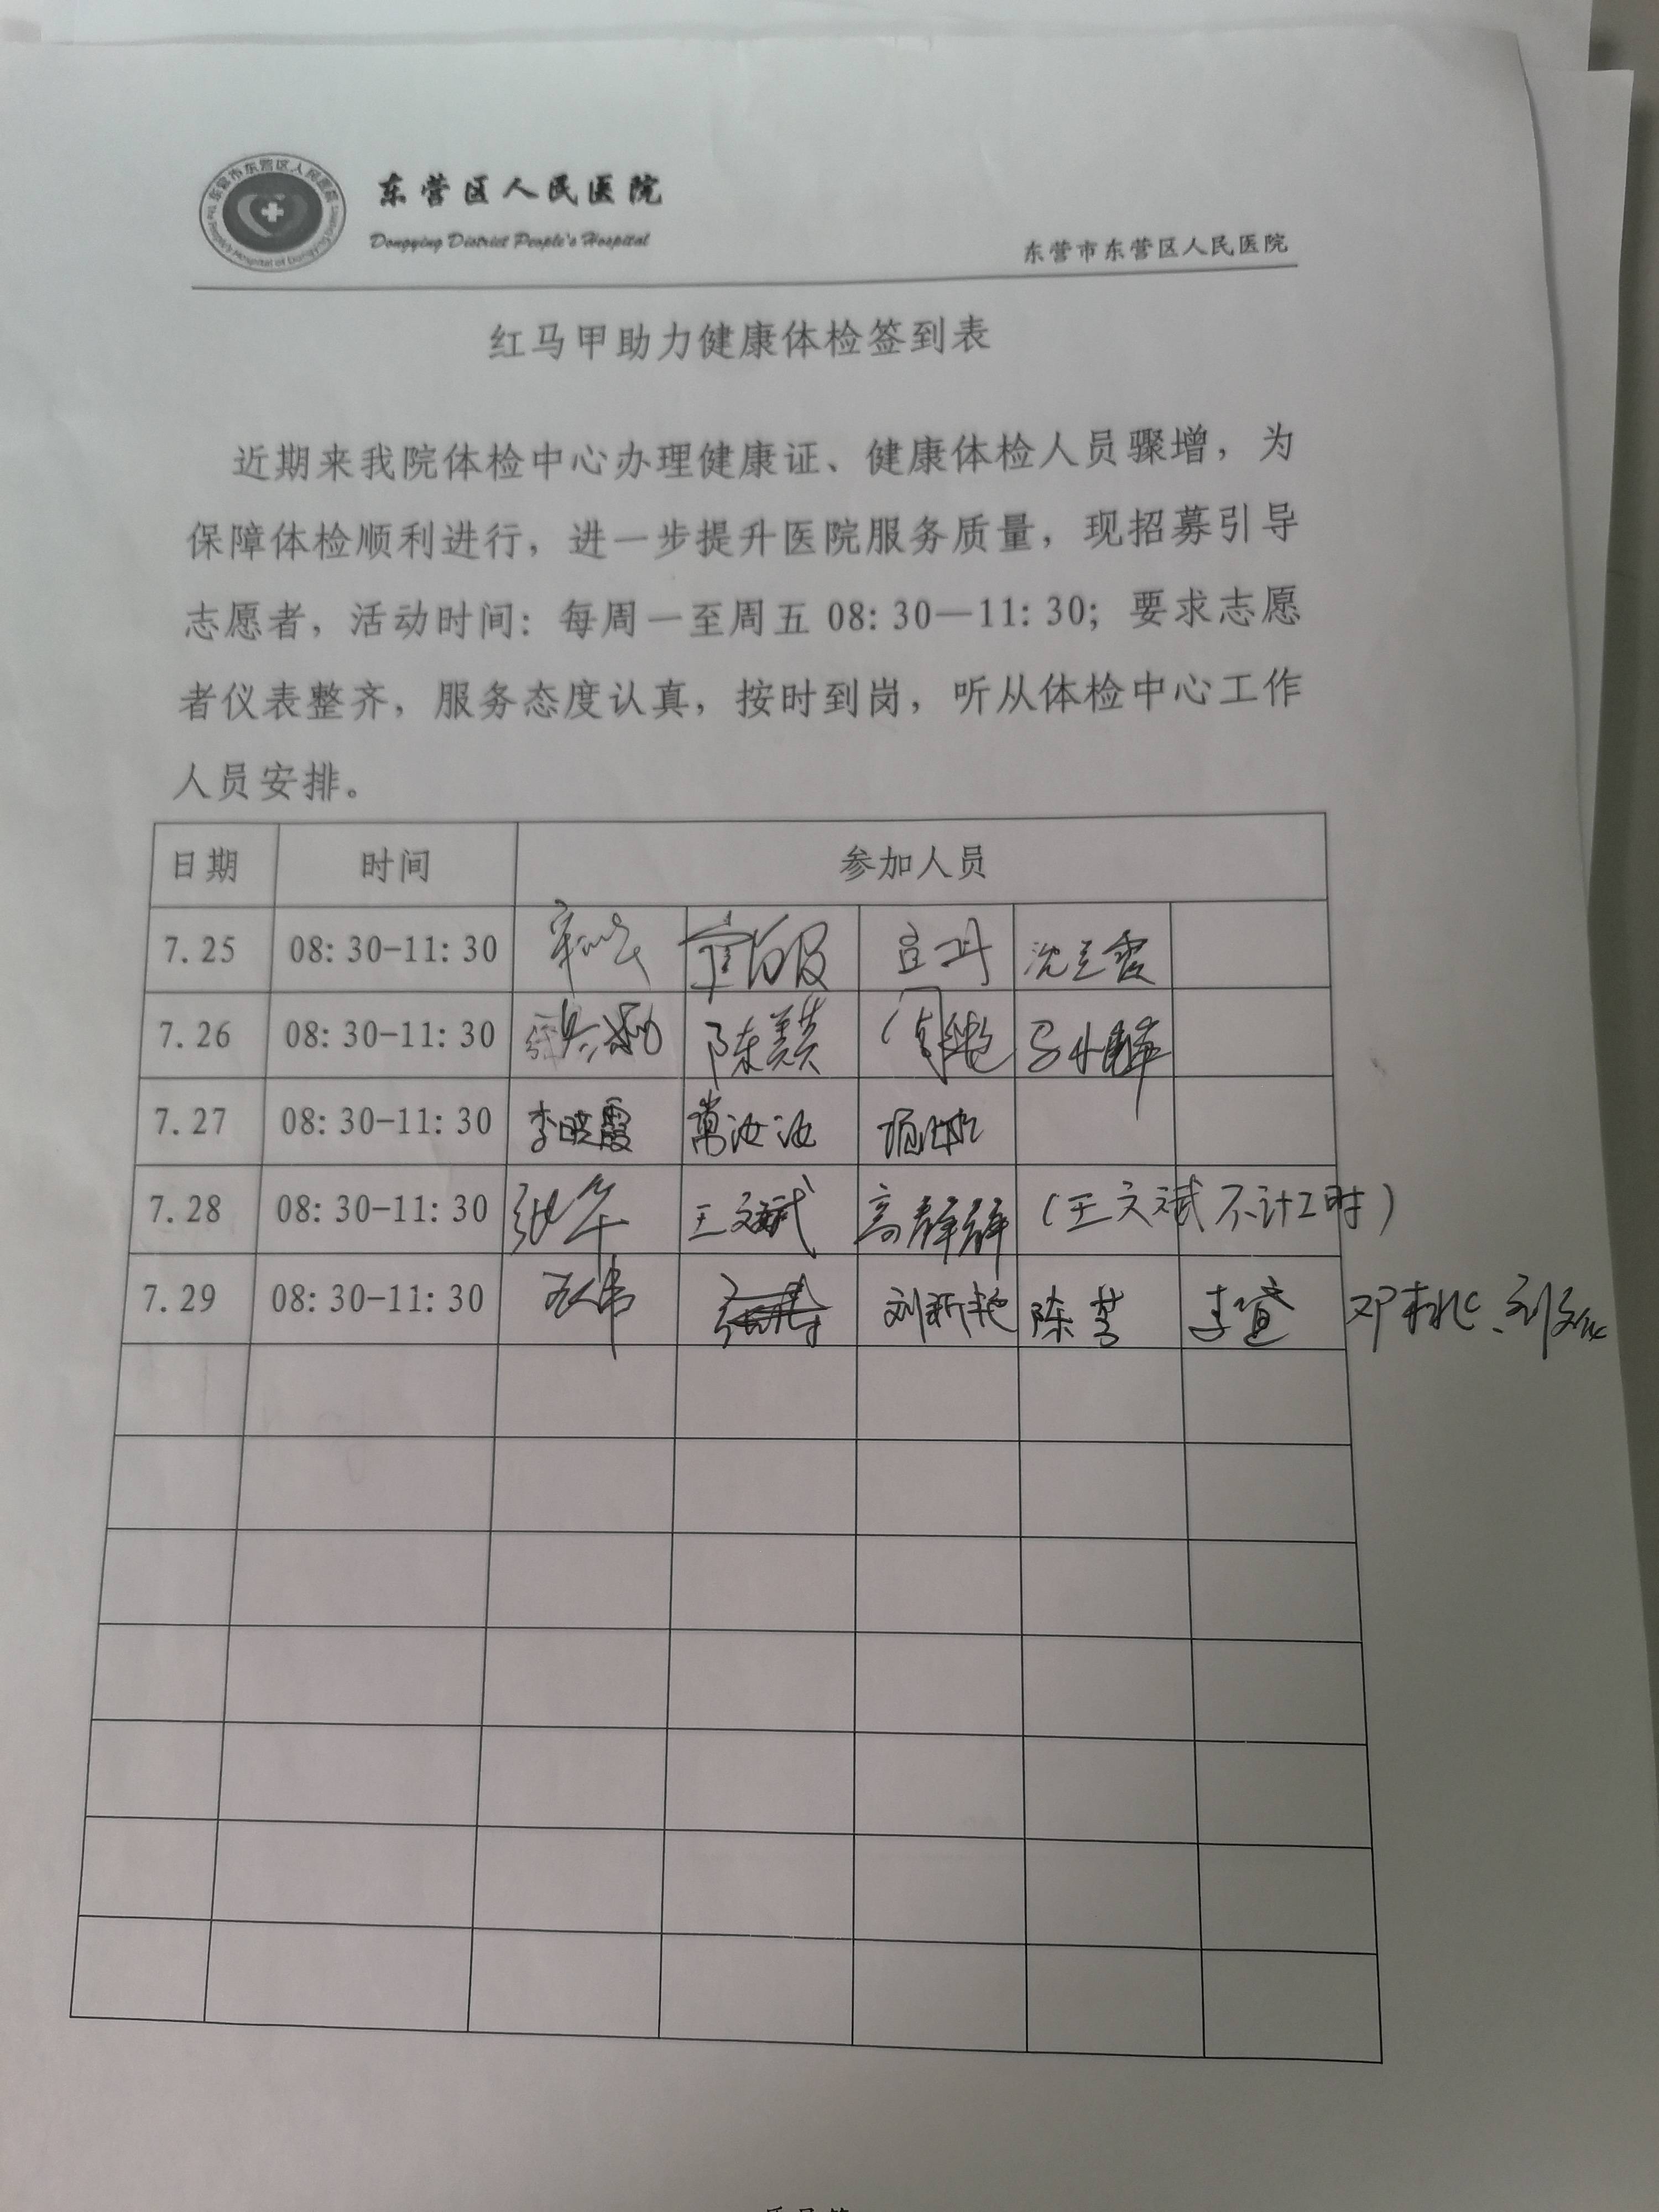 东营区人民医院
Dongying District People's Hospital
东营市东营区人民医院
红马甲助力健康体检签到表
近期来我院体检中心办理健康证、健康体检人员骤增，为
保障体检顺利进行，进一步提升医院服务质量，现招募引导
志愿者，活动时间：每周一至周五 08：30—11：30；要求志愿
者仪表整齐，服务态度认真，按时到岗，听从体检中心工作
人员安排。
日期 时间 参加人员
7.25 08：30-11：30
7.26 08：30-11：30 陈美英
7.27 08：30-11：30 李晓霞 常汝汝
7.28 08：30-11：30 张华 王文斌 高群群 （王文斌不计工时）
7.29 08：30-11：30 刘新艳 陈芳 李萱